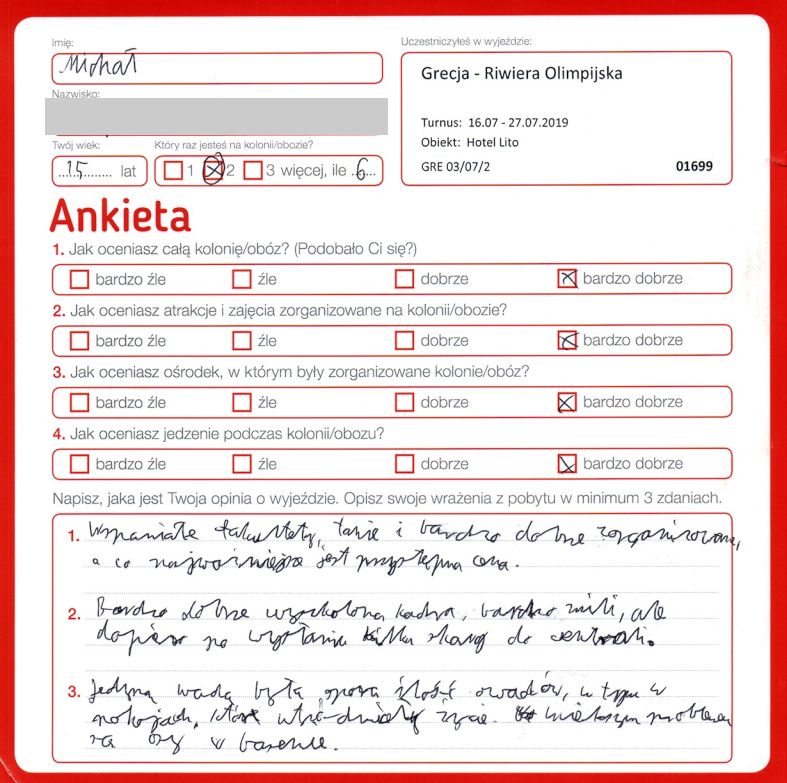 Imię:
Michał
Uczestniczyłeś w wyjeździe:
Grecja - Riwiera Olimpijska
Nazwisko:
Turnus: 16.07 - 27.07.2019
Obiekt: Hotel Lito
GRE 03/07/2 01699
Twój wiek: Który raz jesteś na kolonii/obozie?
15 lat 1 2 3 więcej, ile 6
Ankieta
1. Jak oceniasz całą kolonię/obóz? (Podobało Ci się?)
bardzo źle źle dobrze bardzo dobrze
2. Jak oceniasz atrakcje i zajęcia zorganizowane na kolonii/obozie?
bardzo źle źle dobrze bardzo dobrze
3. Jak oceniasz ośrodek, w którym były zorganizowane kolonie/obóz?
bardzo źle źle dobrze bardzo dobrze
4. Jak oceniasz jedzenie podczas kolonii/obozu?
bardzo źle źle dobrze bardzo dobrze
Napisz, jaka jest Twoja opinia o wyjeździe. Opisz swoje wrażenia z pobytu w minimum 3 zdaniach.
1. Wspaniałe fakultety, tanie i bardzo dobrze zorganizowane,
a co najważniejsze jest przystępna cena.
2. Bardzo dobrze wyszkolona kadra, bardzo mili, ale
dopiero po wysłaniu kilku skarg do centrali.
3. Jedyną wadą była spora ilość owadów, w tym w
pokojach, które utrudniały życie. większym problemem
są osy w basenie.